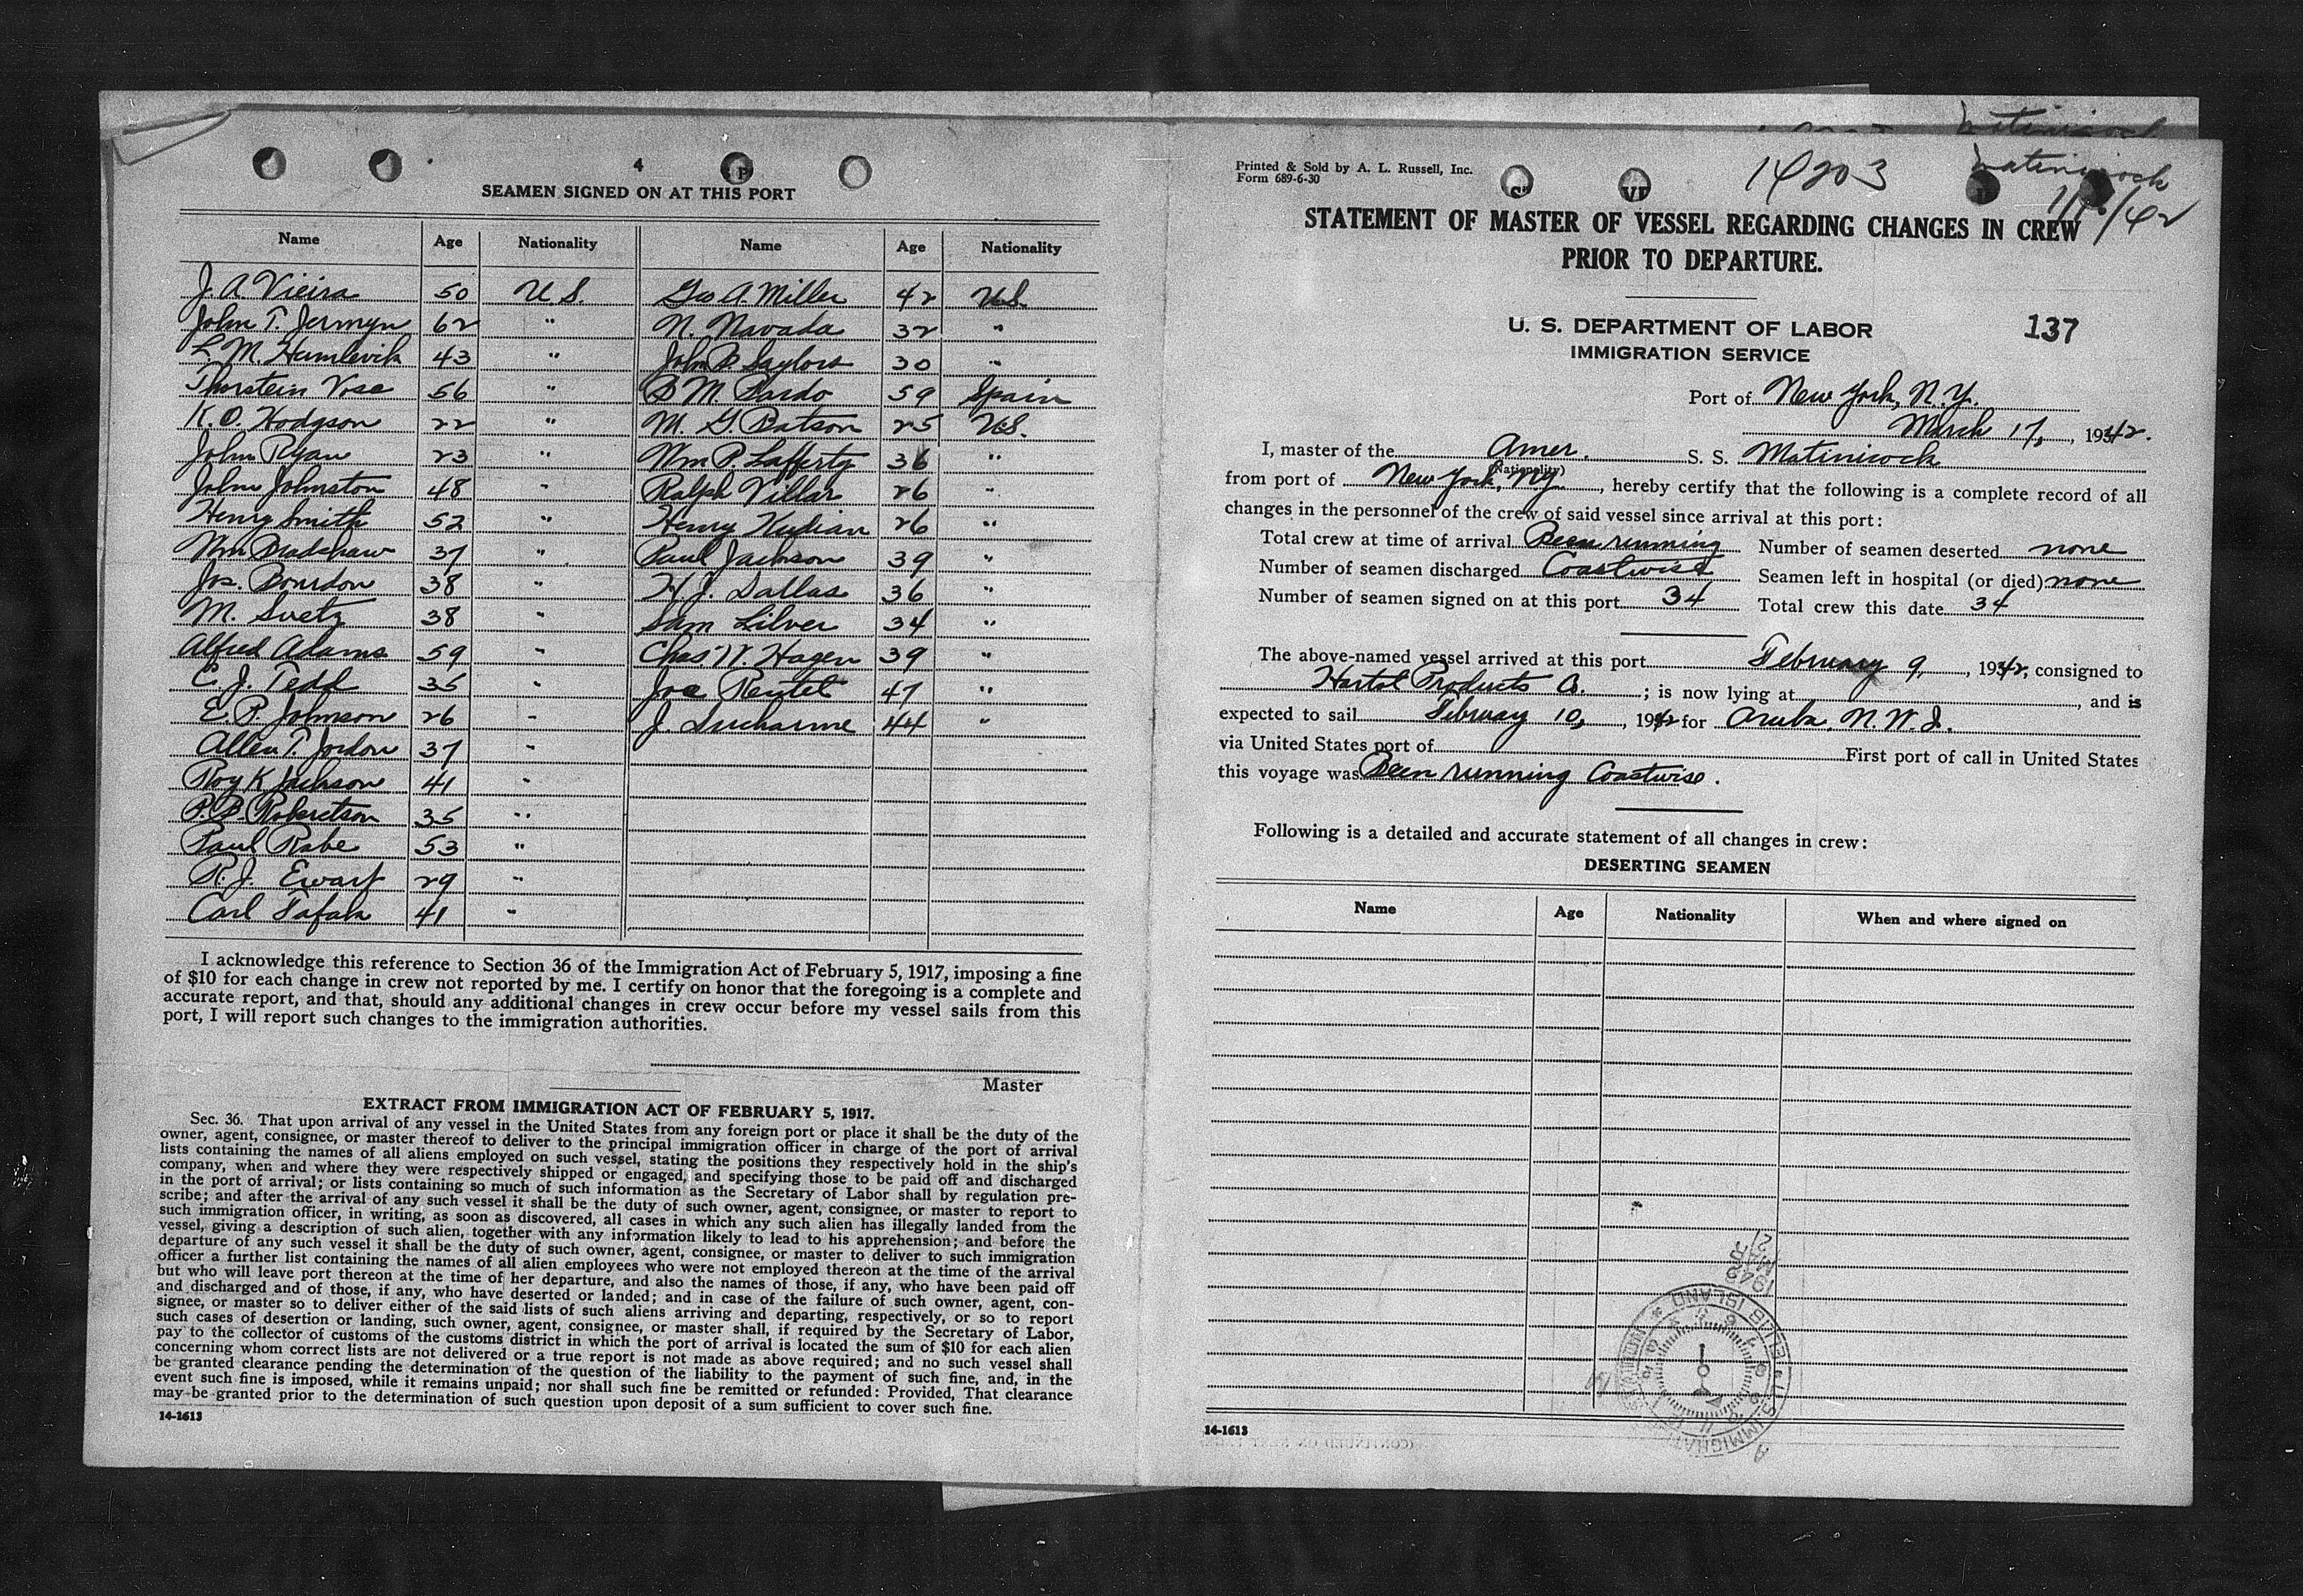 4
SEAMEN SIGNED ON AT THIS PORT
Name Age Nationality Name Age Nationality
J. A. Vieira 50 U.S. Geo A. Miller 42 U.S.
John T. Jermyn 62 " N. Navada 32 "
L. M. 43 " John 30 "
Thorstein 56 " 59 Spain
K. O. Hodgson 22 " M. G. Batson 25 U.S.
John Ryan 23 " Wm P. Lafferty 36 "
John Johnston 48 " Ralph Villar 26 "
Henry Smith 52 " Henry 26 "
Wm Bradshaw 37 " Paul Jackson 39 "
Jos. Bourdon 38 " H. J. Dallas 36 "
M. Svetz 38 " Sam Lilver 34 "
Alfred Adams 59 " Chas. W. Hagen 39 "
C. J. Tedd 35 " Joe Rentel 47 "
E. P. Johnson 26 " J. Ducharme 44 "
Allen T. Jordon 37 "
Roy K Jackson 41 "
P. B. Robertson 35 "
Paul Rabe 53 "
R. J. Ewart 29 "
Carl 41 "
I acknowledge this reference to Section 36 of the Immigration Act of February 5, 1917, imposing a fine
of $10 for each change in crew not reported by me. I certify on honor that the foregoing is a complete and
accurate report, and that, should any additional changes in crew occur before my vessel sails from this
port, I will report such changes to the immigration authorities.
Master
EXTRACT FROM IMMIGRATION ACT OF FEBRUARY 5, 1917.
Sec. 36. That upon arrival of any vessel in the United States from any foreign port or place it shall be the duty of the
owner, agent, consignee, or master thereof to deliver to the principal immigration officer in charge of the port of arrival
lists containing the names of all aliens employed on such vessel, stating the positions they respectively hold in the ship's
company, when and where they were respectively shipped or engaged, and specifying those to be paid off and discharged
in the port of arrival; or lists containing so much of such information as the Secretary of Labor shall by regulation pre-
scribe; and after the arrival of any such vessel it shall be the duty of such owner, agent, consignee, or master to report to
such immigration officer, in writing, as soon as discovered, all cases in which any such alien has illegally landed from the
vessel, giving a description of such alien, together with any information likely to lead to his apprehension; and before the
departure of any such vessel it shall be the duty of such owner, agent, consignee, or master to deliver to such immigration
officer a further list containing the names of all alien employees who were not employed thereon at the time of the arrival
but who will leave port thereon at the time of her departure, and also the names of those, if any, who have been paid off
and discharged and of those, if any, who have deserted or landed; and in case of the failure of such owner, agent, con-
signee, or master so to deliver either of the said lists of such aliens arriving and departing, respectively, or so to report
such cases of desertion or landing, such owner, agent, consignee, or master shall, if required by the Secretary of Labor,
pay to the collector of customs of the customs district in which the port of arrival is located the sum of $10 for each alien
concerning whom correct lists are not delivered or a true report is not made as above required; and no such vessel shall
be granted clearance pending the determination of the question of the liability to the payment of such fine, and, in the
event such fine is imposed, while it remains unpaid; nor shall such fine be remitted or refunded: Provided, That clearance
may be granted prior to the determination of such question upon deposit of a sum sufficient to cover such fine.
14-1613
Printed & Sold by A. L. Russell, Inc.
Form 689-6-30
14203
Matinicock
STATEMENT OF MASTER OF VESSEL REGARDING CHANGES IN CREW
PRIOR TO DEPARTURE.
U. S. DEPARTMENT OF LABOR
IMMIGRATION SERVICE
137
Port of New York, N.Y.
March 17, 1942.
I, master of the Amer. S. S. Matinicock
(Nationality)
from port of New York, N.Y., hereby certify that the following is a complete record of all
changes in the personnel of the crew of said vessel since arrival at this port:
Total crew at time of arrival Been running Number of seamen deserted none
Number of seamen discharged Coastwise Seamen left in hospital (or died) none
Number of seamen signed on at this port 34 Total crew this date 34
The above-named vessel arrived at this port February 9, 1942, consigned to
Hartol Products Co.; is now lying at , and is
expected to sail February 10, 1942 for Aruba, N.W.I.
via United States port of First port of call in United States
this voyage was Been running Coastwise.
Following is a detailed and accurate statement of all changes in crew:
DESERTING SEAMEN
Name Age Nationality When and where signed on
1942 MAR 21
ELLIS ISLAND
14-1613